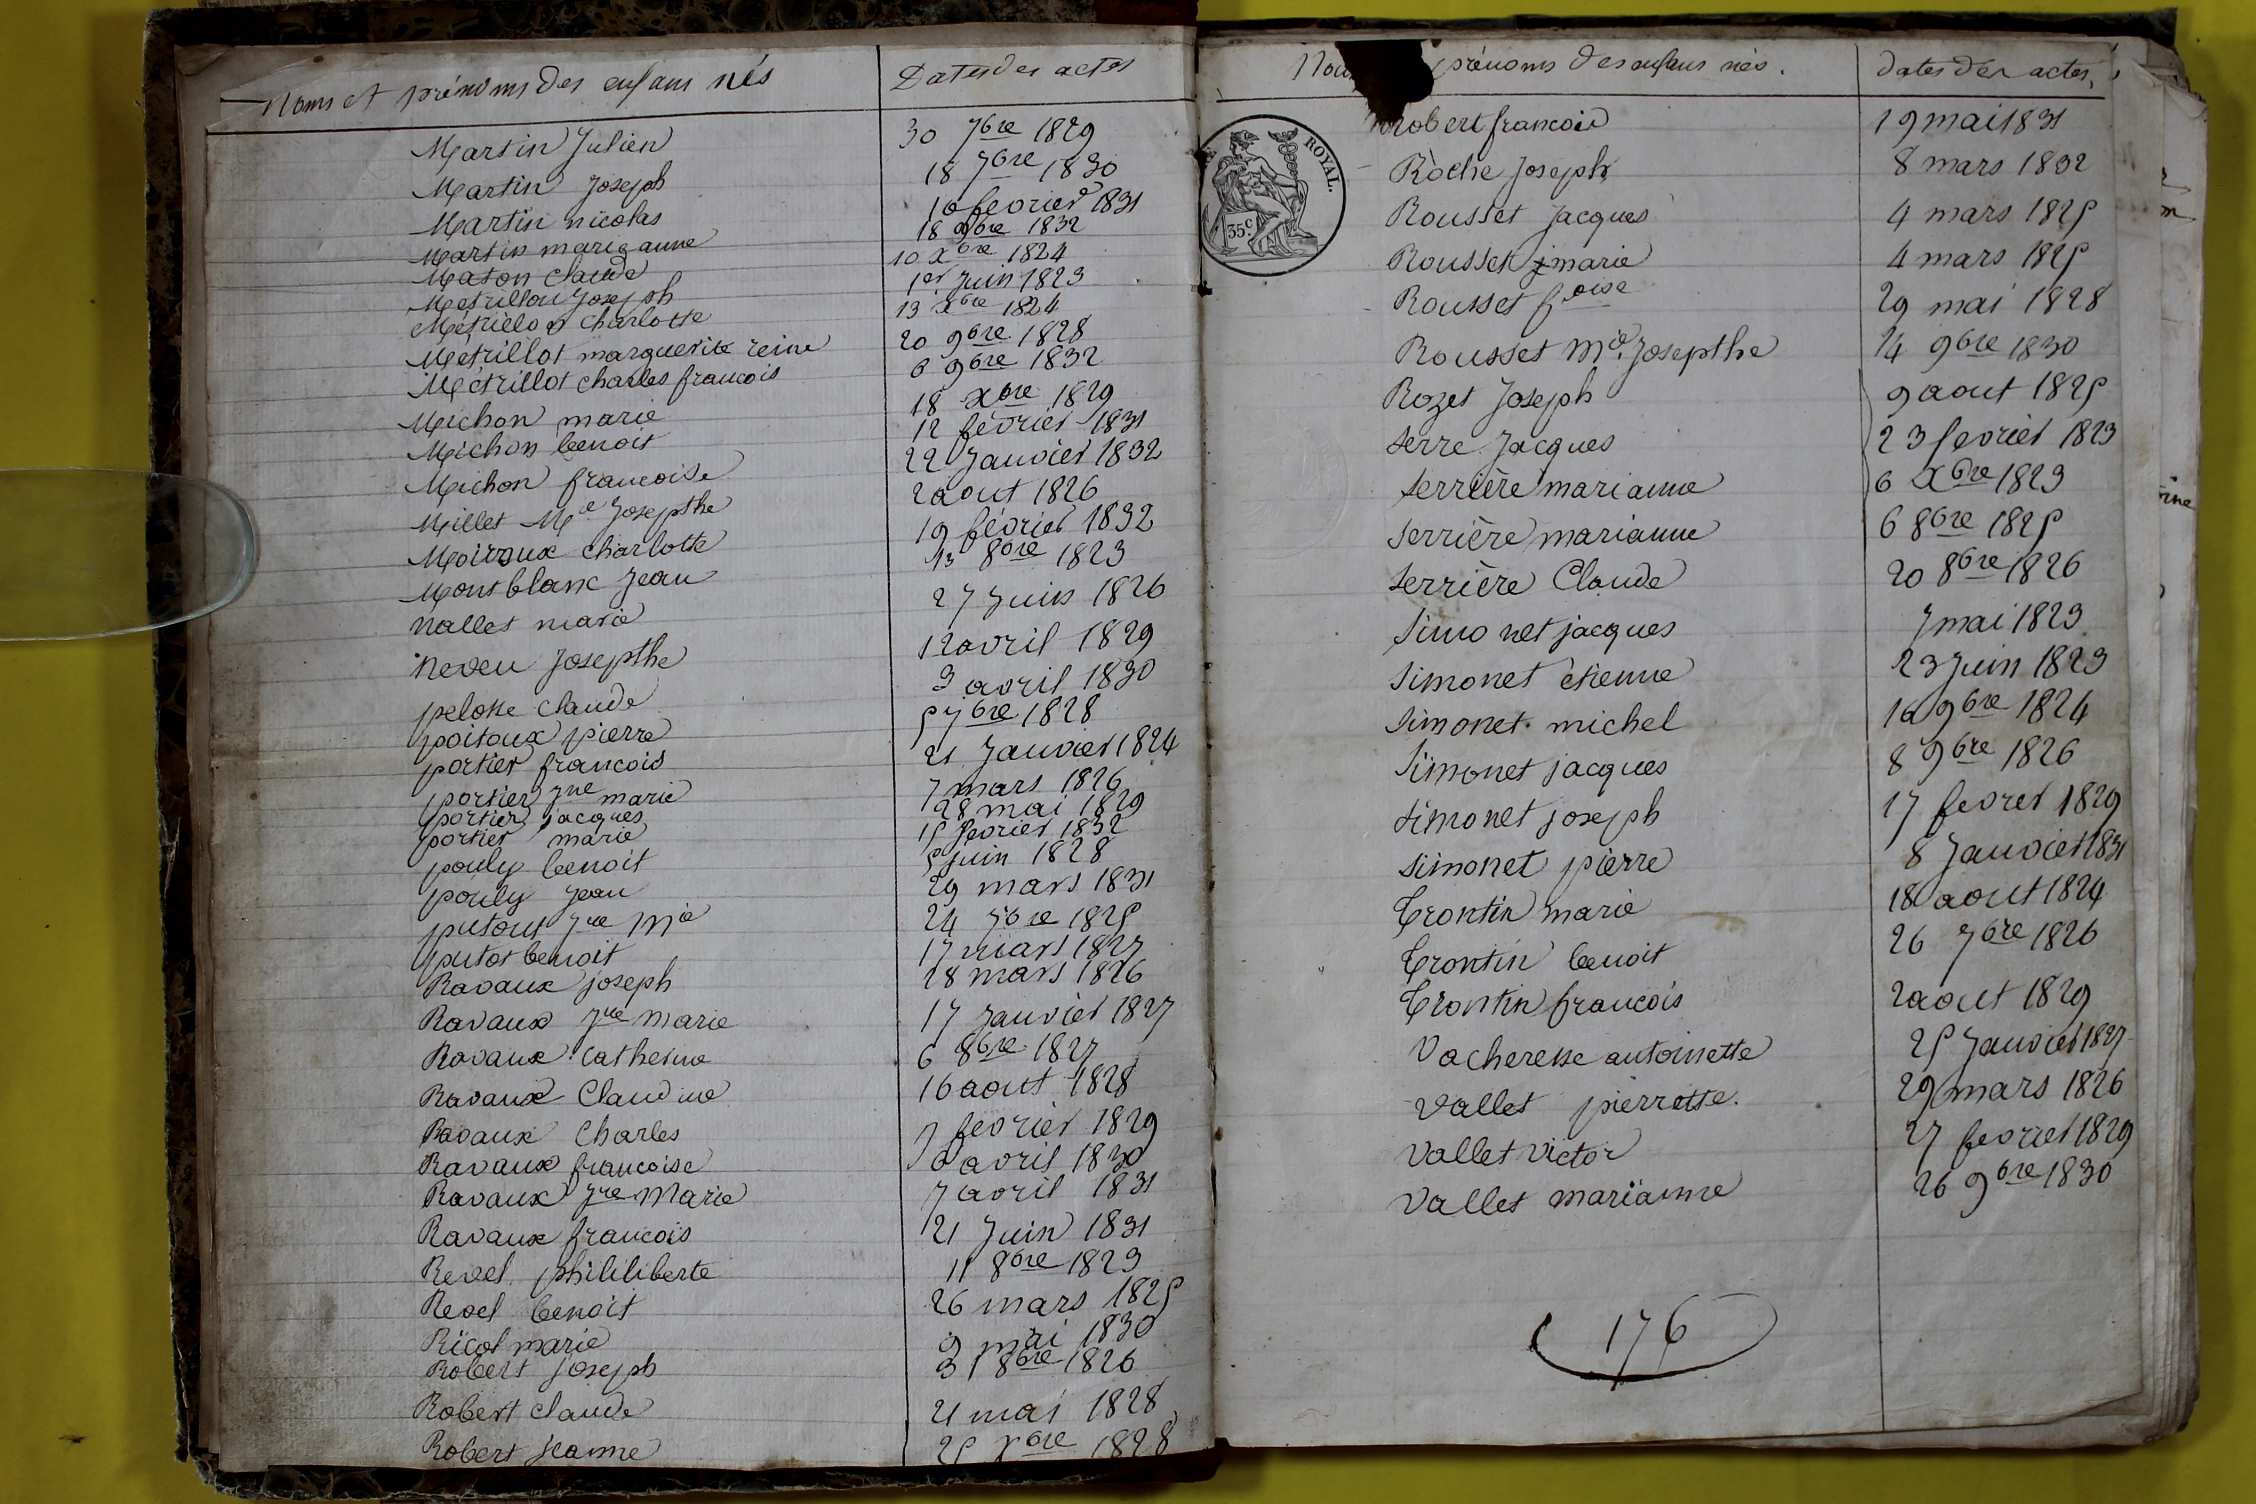 Noms et prénoms des enfans nés Dates des actes
Martin Julien 30 7bre 1829
Martin Joseph 18 7bre 1830
Martin nicolas 10 fevrier 1831
Martin marianne 18 9bre 1832
Maton Claude 10 xbre 1824
Metrillou Joseph 1er Juin 1823
Métrillon Charlotte 13 xbre 1824
Metrillot marguerite reine 20 9bre 1828
Métrillot charles francois 6 9bre 1832
Michon marie 18 xbre 1829
Michon benoit 12 février 1831
Michon francoise 22 Janvier 1832
Millet Me Josepthe 2 aout 1826
Moiroux charlotte 19 février 1832
Montblanc Jean 13 8bre 1823
nallet marie 27 Juin 1826
neveu Josepthe 12 avril 1829
pelosse claude 3 avril 1830
poitoux pierre 5 7bre 1828
portier francois 21 Janvier 1824
portier Jne marie 7 mars 1826
portier jacques 28 mai 1829
portier marie 15 fevrier 1832
pouly benoit 5 Juin 1828
pouly Jean 29 mars 1831
putout Jne Mie 24 7bre 1825
putot benoit 17 mars 1827
Ravaux joseph 28 mars 1826
Ravaux Jne marie 17 Janvier 1827
Ravaux Catherine 6 8bre 1827
Ravaux Claudine 16 aout 1828
Ravaux Charles 7 fevrier 1829
Ravaux francoise 6 avril 1830
Ravaux Jne Marie 7 avril 1831
Ravaux francois 21 Juin 1831
Revel philiberte 11 8bre 1823
Revel benoit 26 mars 1825
Ricol marie 9 mai 1830
Robert Joseph 31 8bre 1826
Robert claude 21 mai 1828
Robert Jeanne 25 xbre 1828
prénoms des enfans nés. dates des actes,
ROYAL.
35c.
Robert francois 19 mai 1831
Roche Joseph 8 mars 1832
Rousset Jacques 4 mars 1825
Rousset jmarie 4 mars 1825
Rousset foise 29 mai 1828
Rousset Mie Josepthe 14 9bre 1830
Rozet Joseph 9 aout 1825
Serre Jacques 23 fevrier 1823
Serrière marianne 6 xbre 1823
Serrière marianne 6 8bre 1825
Serrière Claude 20 8bre 1826
Simonet jacques 7 mai 1823
Simonet étienne 23 Juin 1823
Simonet michel 16 9bre 1824
Simonet jacques 8 9bre 1826
Simonet joseph 17 fevrer 1829
Simonet pierre 8 Janvier 1831
Trontin marie 18 aout 1824
Trontin benoit 26 7bre 1826
Trontin francois 2 aout 1829
Vacheresse antoinette 25 Janvier 1827
Vallet pierrette. 29 mars 1826
Vallet Victor 27 fevrier 1829
Vallet marianne 26 9bre 1830
176